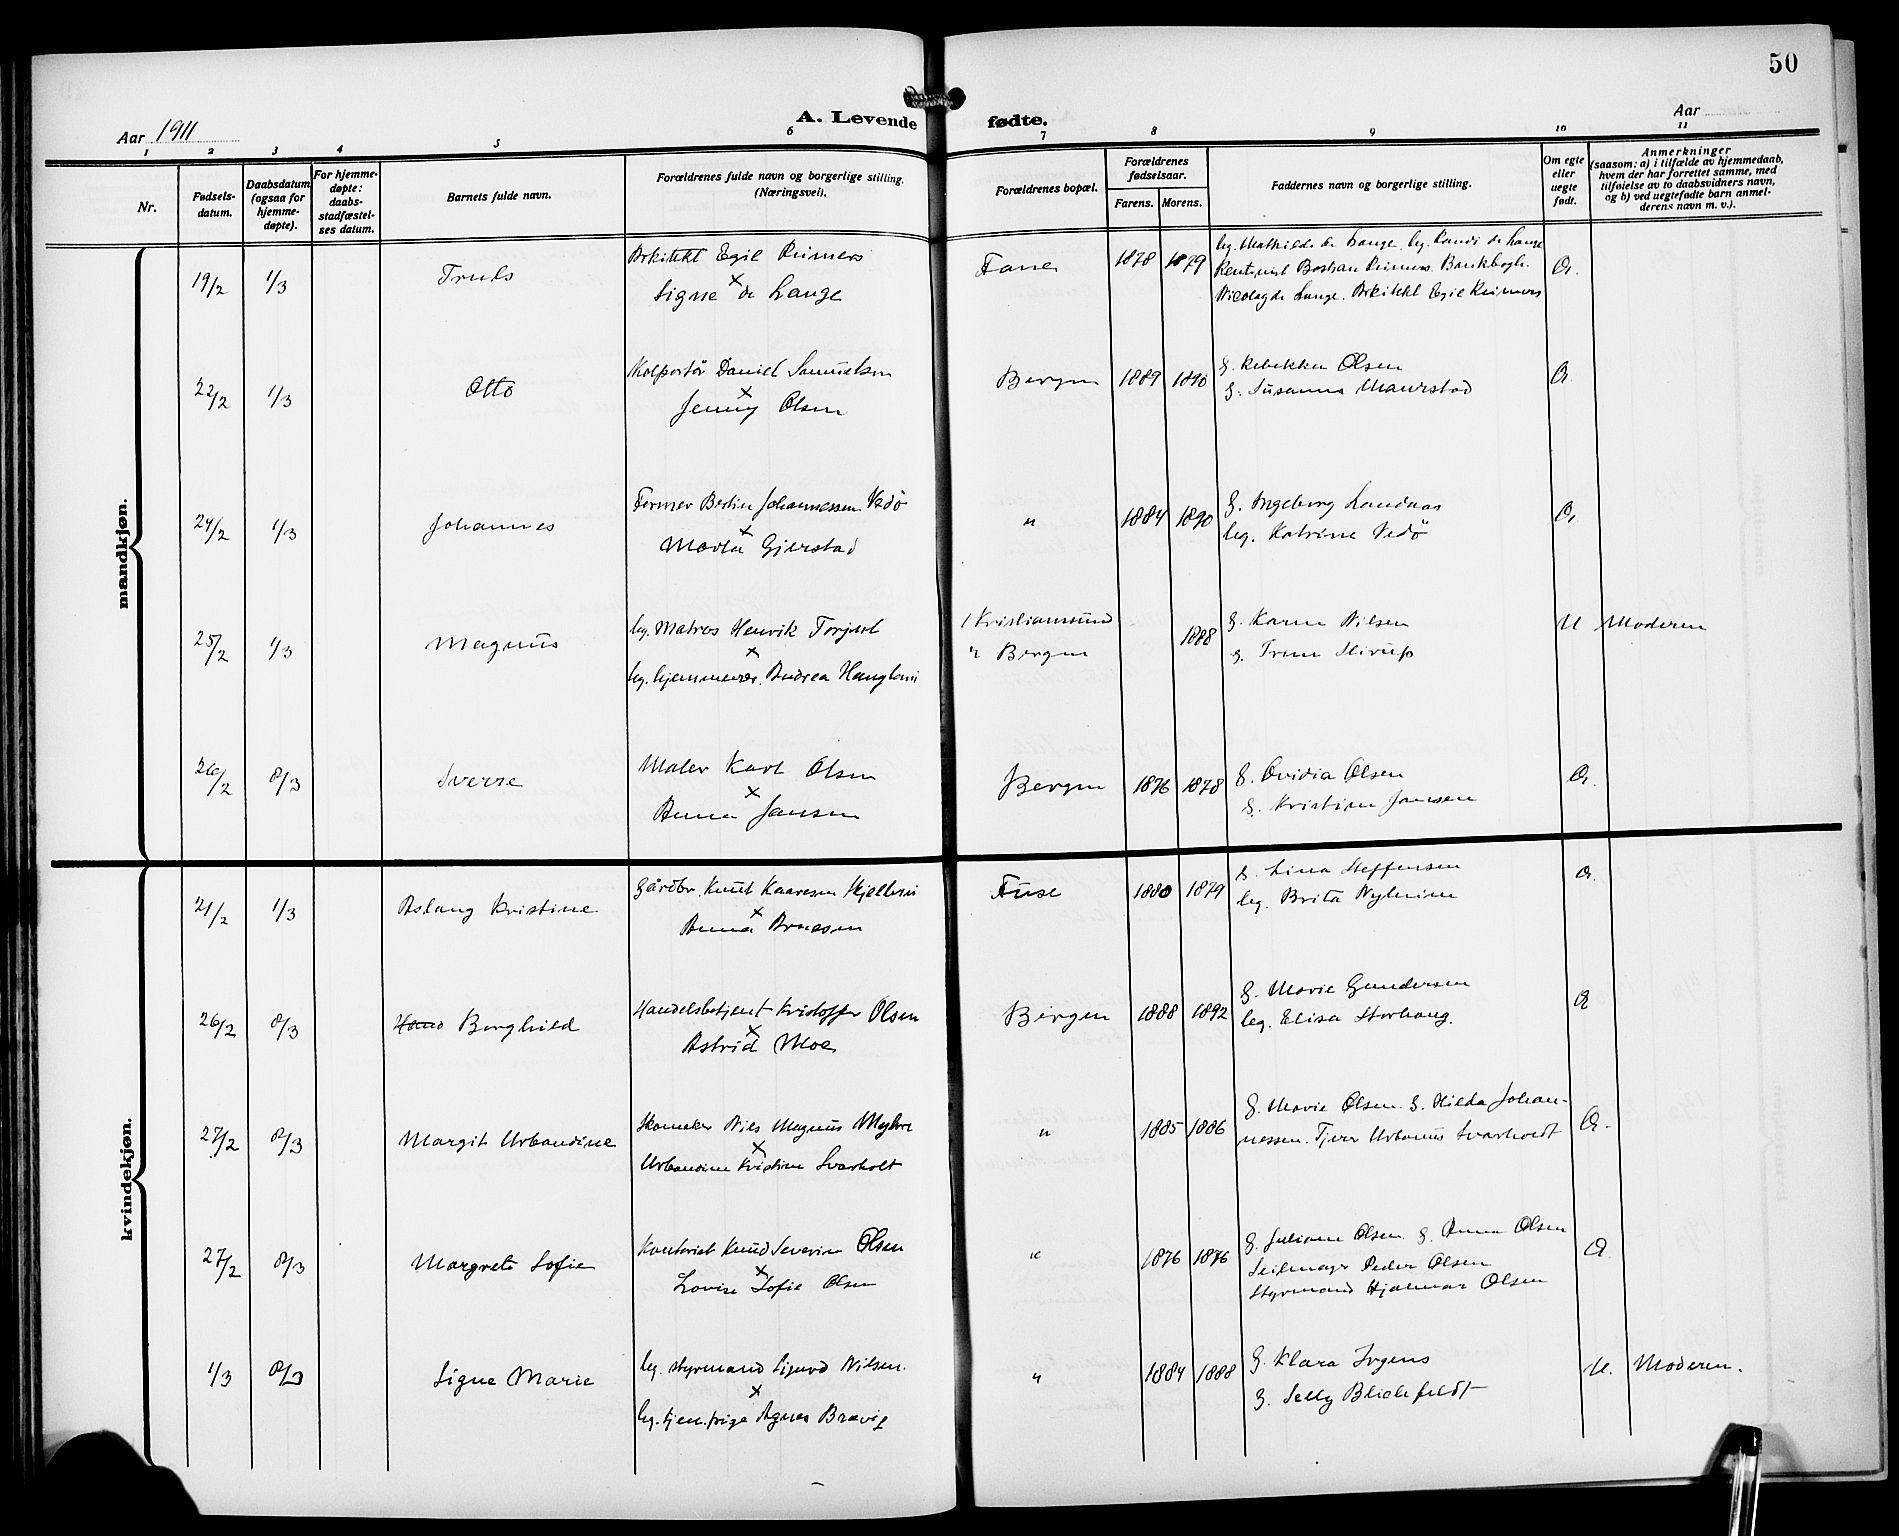 50
Aar 1911
A. Levende fødte.
Aar
1 2 3 4 5 6 7 8 9 10 11
Nr.
Fødsels-
datum.
Daabsdatum
(ogsaa for
hjemme-
døpte).
For hjemme-
døpte:
daabs-
stadfæstel-
ses datum.
Barnets fulde navn.
Forældrenes fulde navn og borgerlige stilling.
(Næringsvei).
Forældrenes bopæl.
Forældrenes
fødselsaar.
Farens. Morens.
Faddernes navn og borgerlige stilling.
Om egte
eller
uegte
født.
Anmerkninger
(saasom: a) i tilfælde av hjemmedaab,
hvem der har forrettet samme, med
tilføielse av to daabsvidners navn,
og b) ved uegtefødte barn anmel-
derens navn m. v.).
mandkjøn.
19/2 1/3 Truls
Arkitekt Egil Reimers
x
Signe de Lange
Fane 1878 1879
ug. Mathilde de Lange. ug. Randi de Lange
Bastian Reimers.
Nicolay de Lange. Arkitekt Egil Reimers
22/2 1/3 Otto
Kolportør Daniel Samuelsen
x
Jenny Olsen
Bergen 1889 1890
g. Rebekka Olsen
g. Susanna Maurstad
24/2 1/3 Johannes
Former Bertin Johannessen Vedø
x
Marta Gjerstad
" 1884 1890
g. Ingeborg Landaas
ug. Katrine Vedø
25/2 1/3 Magnus
ug. Matros Henrik
x
ug. hjemmevær. Andrea
Kristiansund
" Bergen
1888
g. Karen Nilsen
g.
U Moderen
26/2 8/3 Sverre
Maler Karl Olsen
x
Anna Jansen
Bergen 1876 1878
g. Ovidia Olsen
g. Kristine Jansen
kvindekjøn.
21/2 1/3 Aslaug Kristine
Gårdbr. Knut Kaaresen
x
Anna Arnesen
Fuse 1880 1879
g. Lina Steffensen
ug. Brita
26/2 8/3 Borghild
Handelsbetjent Kristoffer Olsen
x
Astrid Moe
Bergen 1888 1892
g. Marie Gundersen
ug. Elisa Storhaug.
27/2 8/3 Margit Urbandine
Skomaker Nils Magnus Myhre
x
Urbandine Kristine Svarholt
" 1885 1886
g. Marie Olsen. g. Hilda Johan-
nessen. Urbanus Svarholdt
27/2 8/3 Margrete Sofie
Kontorist Knud Severin Olsen
x
Lovise Sofie Olsen
" 1876 1876
g. Juliane Olsen g. Anna Olsen
Seilmager Peder Olsen
Styrmand Hjalmar Olsen
1/3 8/3 Signe Marie
ug. styrmand Sigurd Nilsen.
x
ug. tjen.pige Agnes Bravig
" 1884 1888
g. Klara Irgens
g. Selly Blichfeldt
U. Moderen.